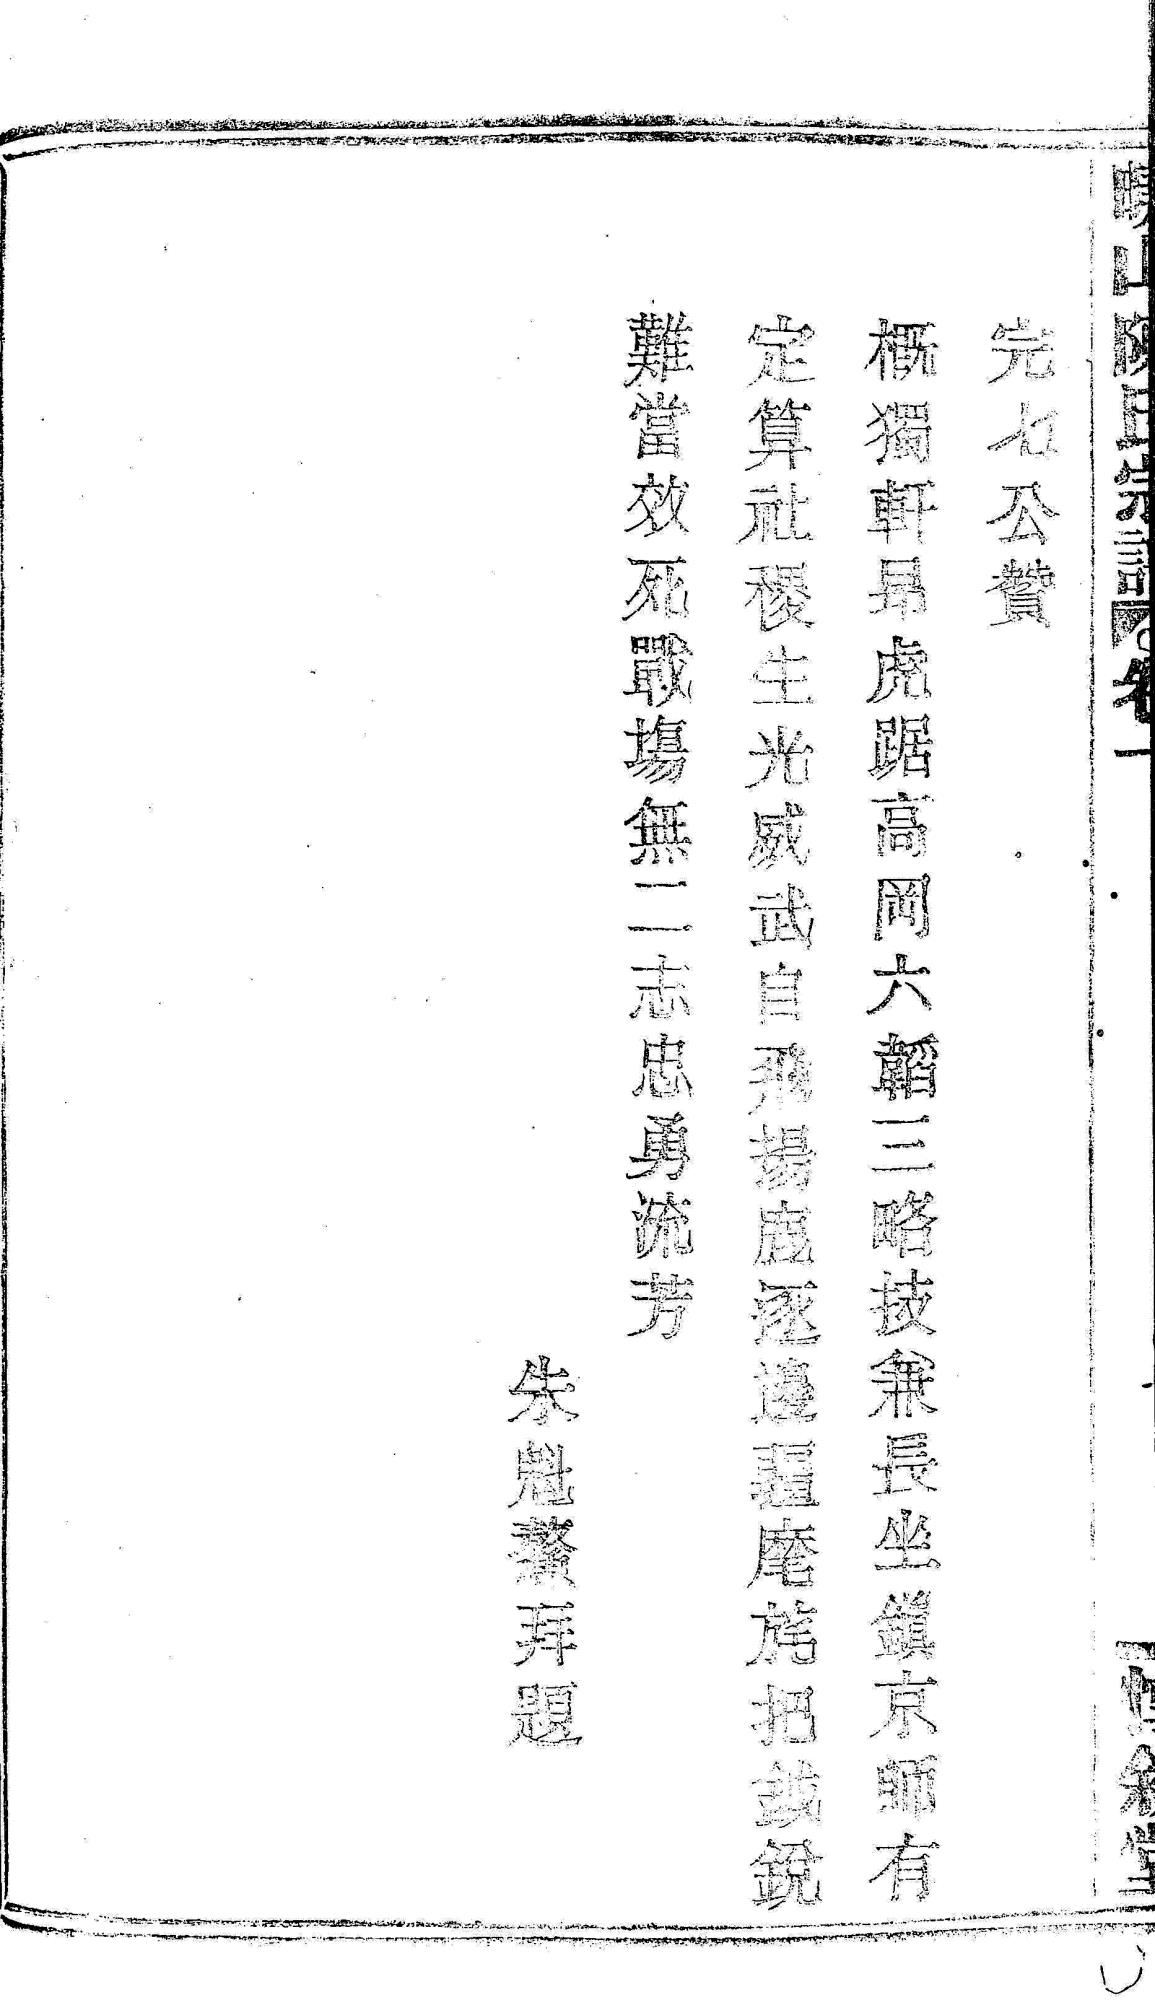 山陳氏宗譜 卷一
完七公贊
概獨軒昻虎踞高岡六韜三略技兼長坐鎮京師有
定算社稷生光威武自飛揚鹿逐邊疆麾旄把鉞銳
難當效死戰塲無二志忠勇流芳
朱魁鰲拜題
堂